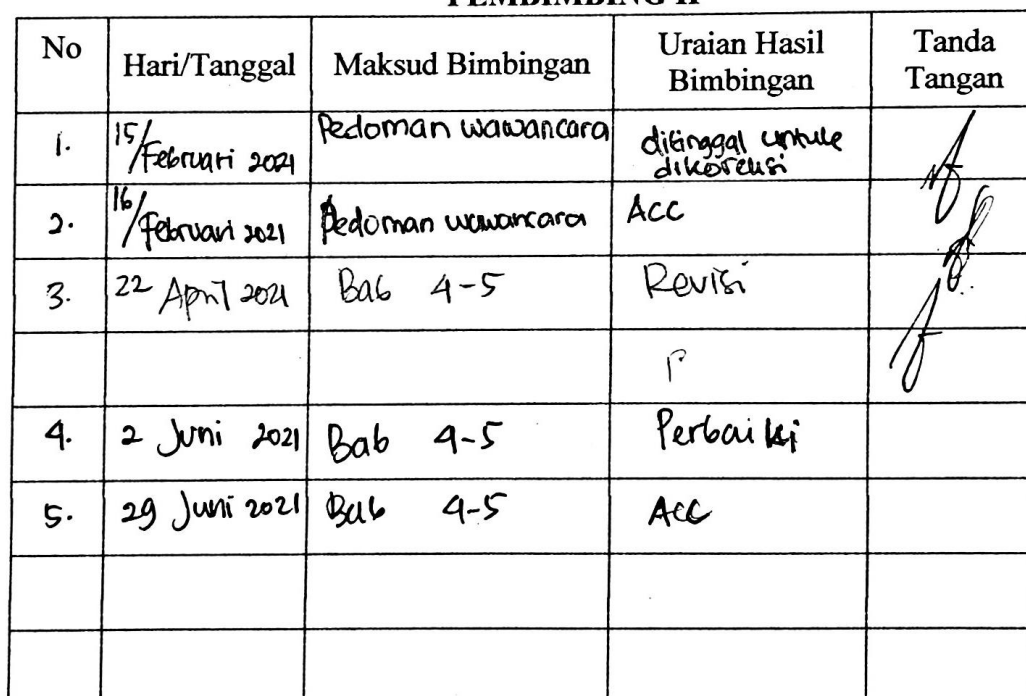 PEMBIMBING II
No Hari/Tanggal Maksud Bimbingan Uraian Hasil Bimbingan Tanda Tangan
1. 15/Februari 2021 Pedoman wawancara ditinggal untuk dikoreksi
2. 16/Februari 2021 Pedoman wawancara ACC
3. 22 April 2021 Bab 4-5 Revisi
4. 2 Juni 2021 Bab 4-5 Perbaiki
5. 29 Juni 2021 Bab 4-5 Acc